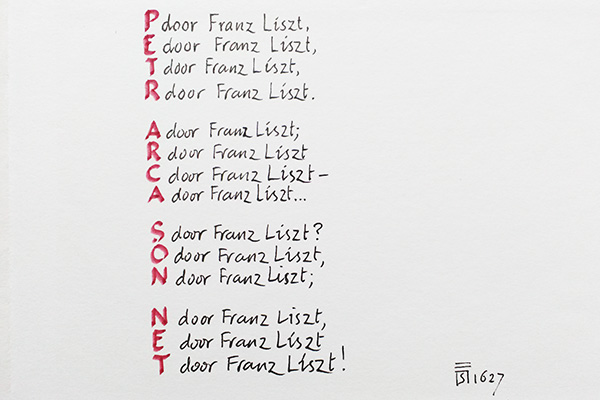 P door Franz Liszt,
E door Franz Liszt,
T door Franz Liszt,
R door Franz Liszt.
A door Franz Liszt;
R door Franz Liszt
C door Franz Liszt –
A door Franz Liszt...
S door Franz Liszt?
O door Franz Liszt,
N door Franz Liszt;
N door Franz Liszt,
E door Franz Liszt
T door Franz Liszt!
1627